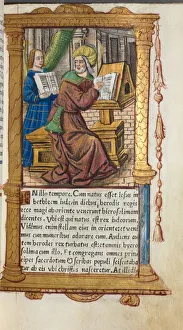 In illo tempore. Cum natus esset iesus in
bethleem iude in diebus herodis regis
ecce magi ab oriente venerunt hierosolimam
dicentes. Ubi est qui natus est rex iudeorum.
Vidimus enim stellam eius in oriente et veni
mus cum muneribus adorare eum. Audiens
autem herodes rex turbatus est et omnis hyero
solima cum illo. Et congregans omnes princi
pes sacerdotum et scribas populi sciscitaba
tur ab eis ubi christus nasceretur. At illi dix